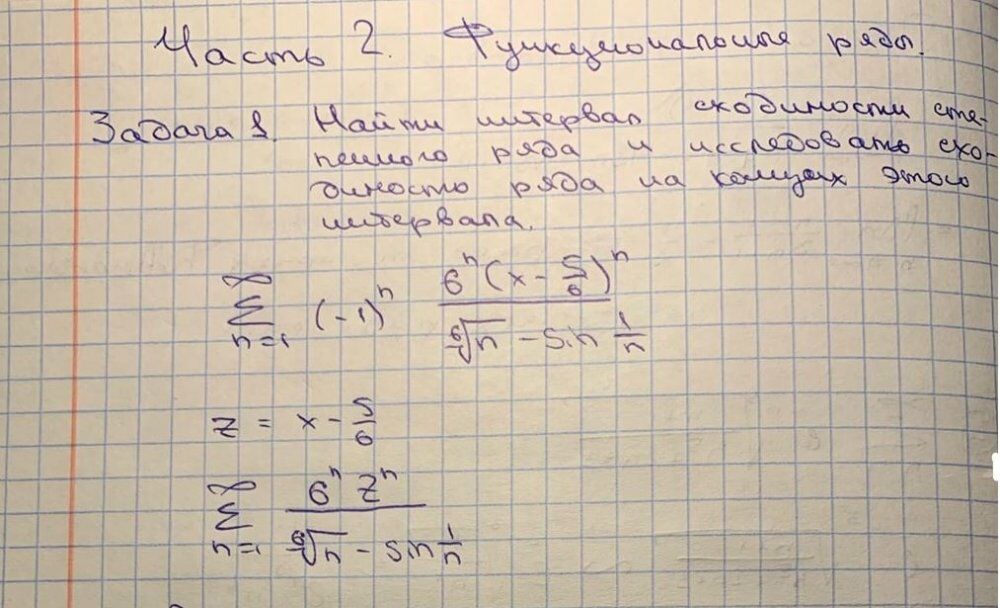 Часть 2. Функциональные ряды.
Задача 1. Найти интервал сходимости сте-
пенного ряда и исследовать схо-
димость ряда на концах этого
интервала.
∞
Σ (-1)^n (6^n (x - 5/6)^n) / (⁶√n - sin 1/n)
n=1
z = x - 5/6
∞
Σ (6^n z^n) / (⁶√n - sin 1/n)
n=1